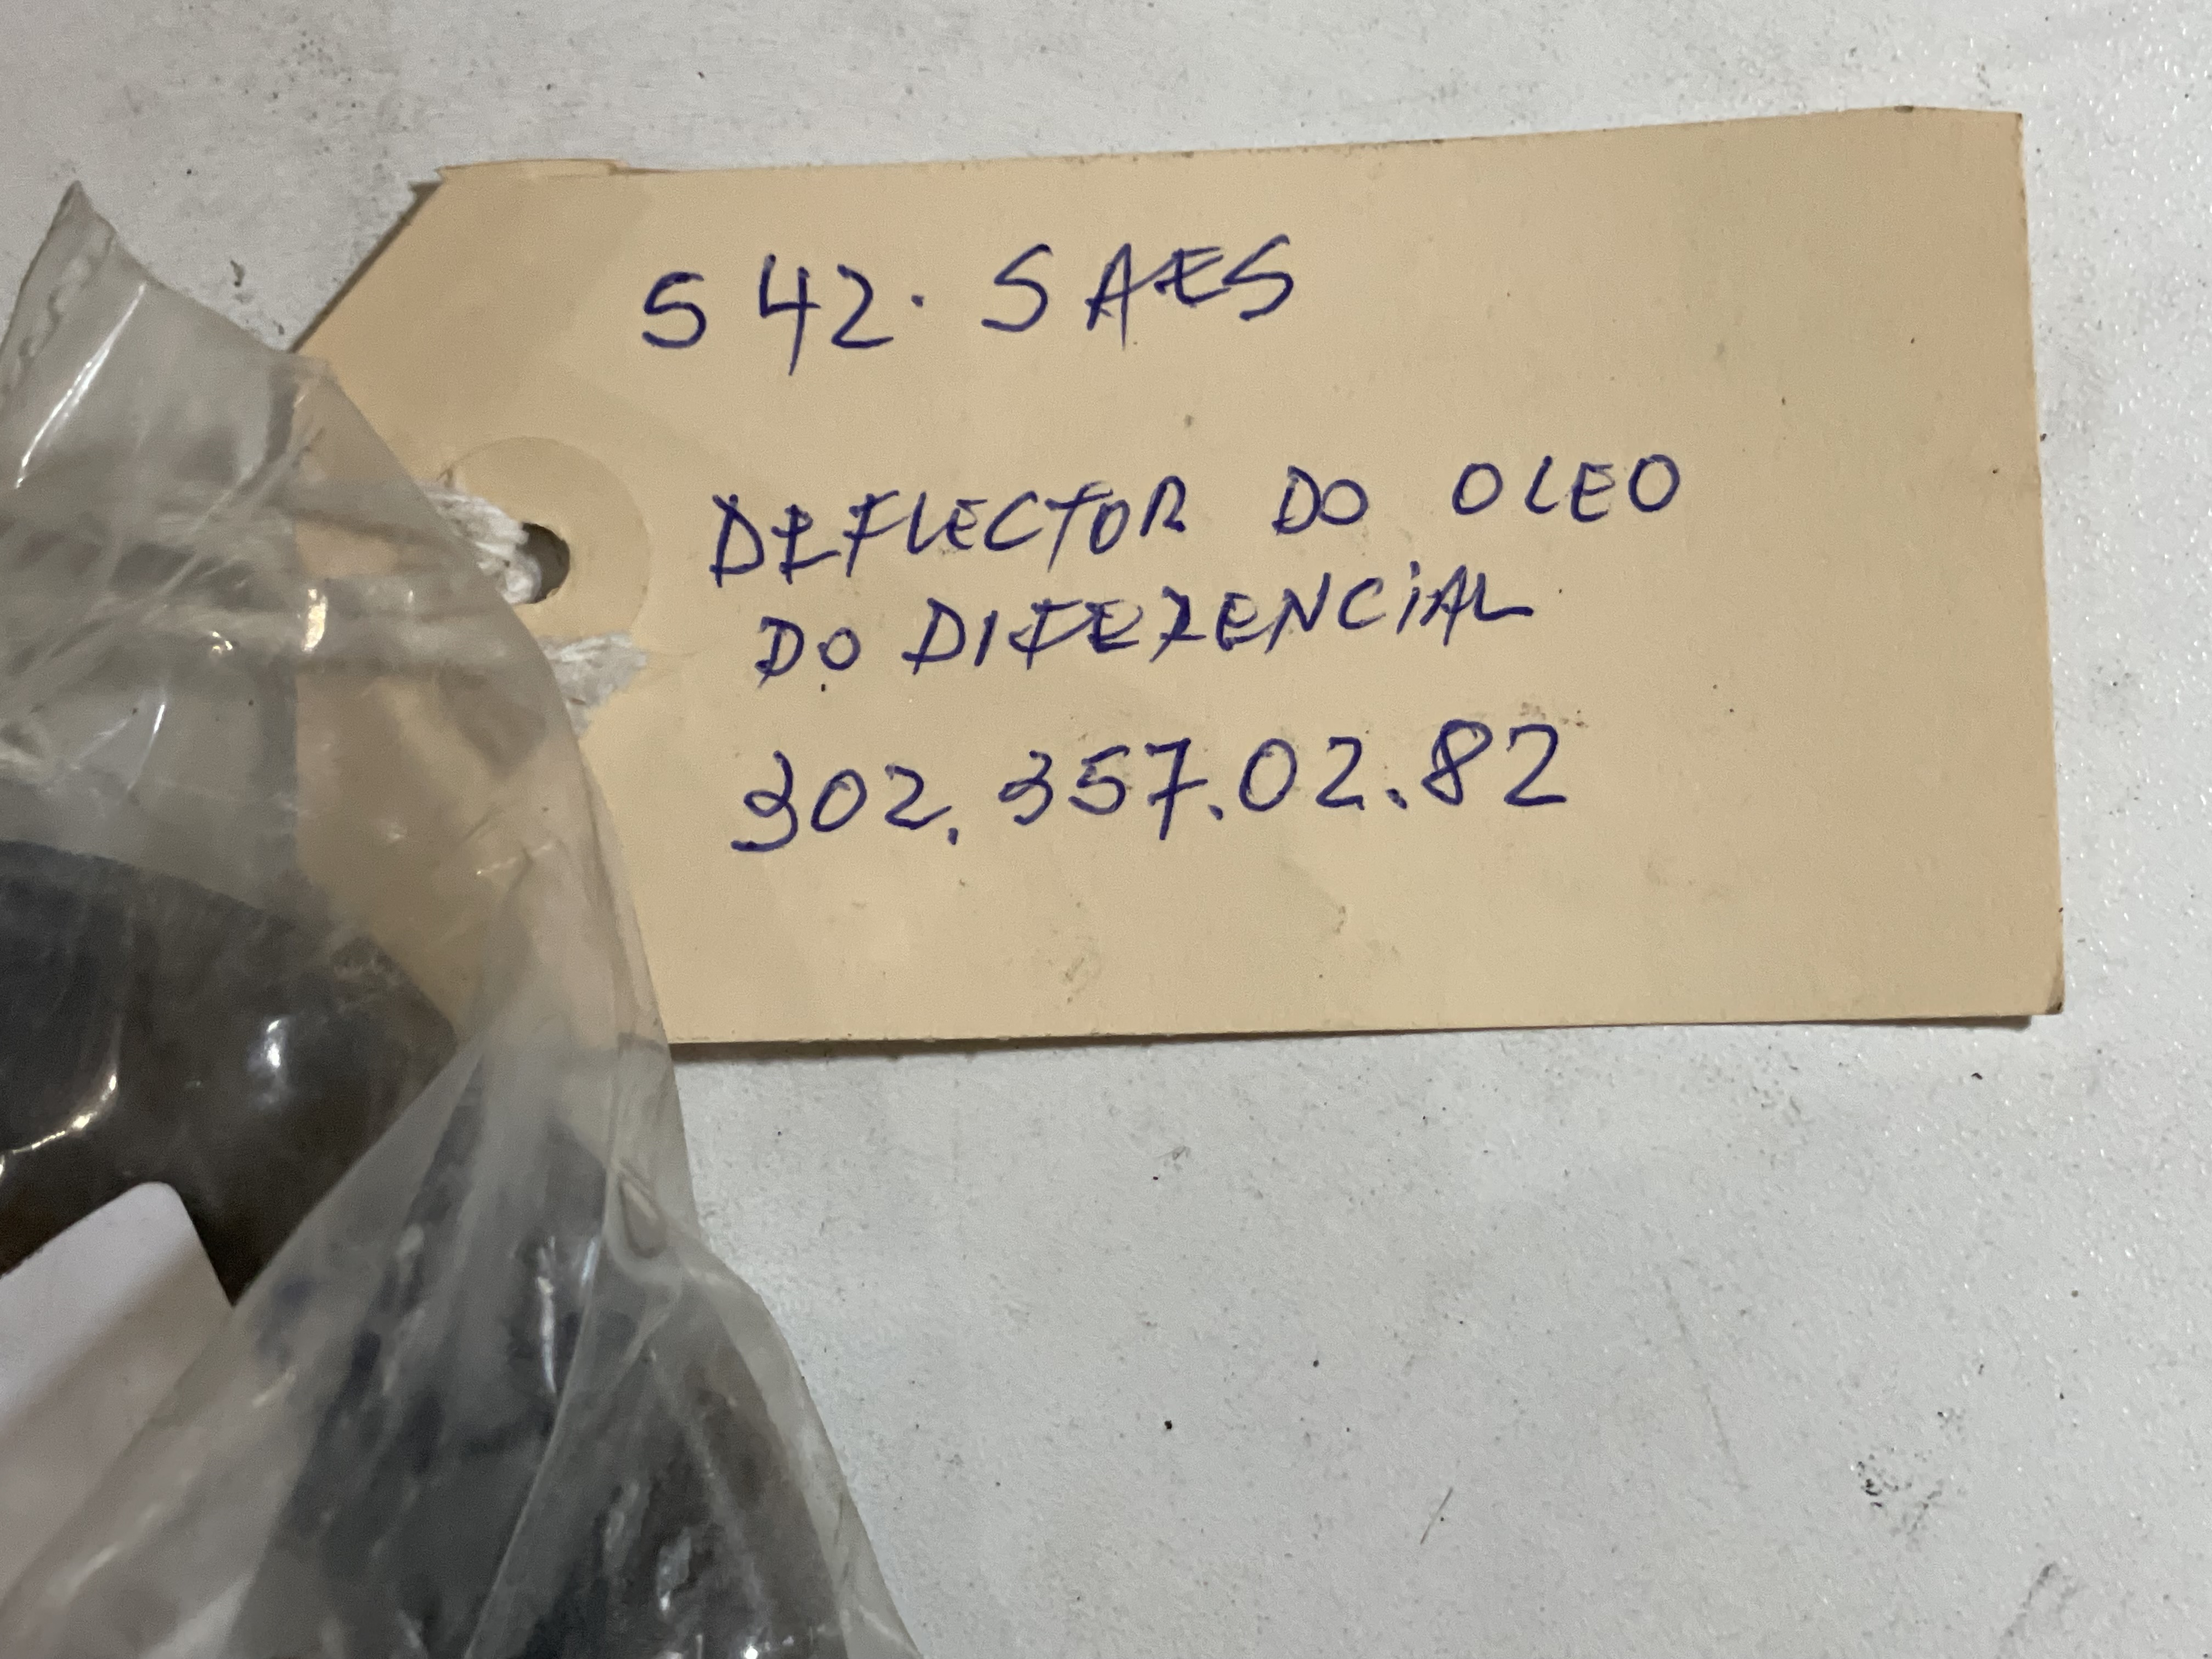 542.5 AES
DEFLECTOR DO OLEO
DO DIFERENCIAL
302.357.02.82